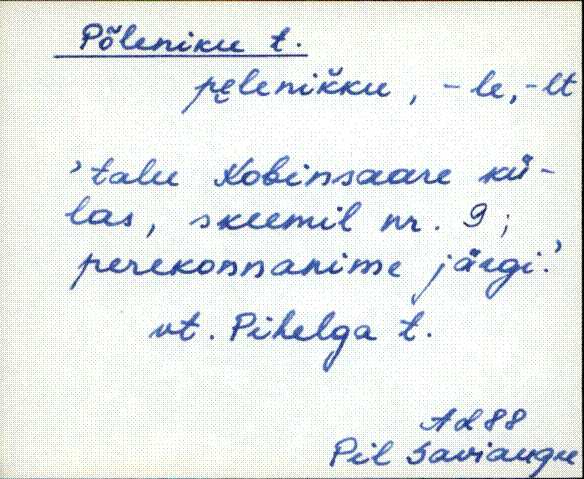 Põleniku t.
pęlenikku, -le, -lt
'talu Kobinsaare kü-
las, skeemil nr. 9;
perekonnanime järgi.'
vt. Pihelga t.
Ad 88
Pil Saviaugu